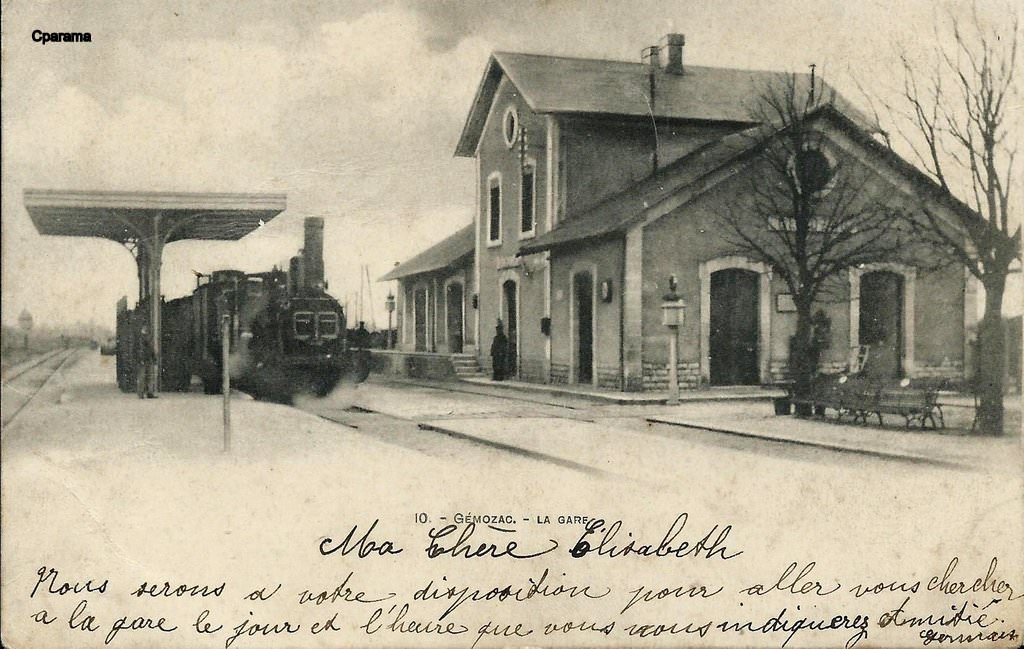 Cparama
10. - GÉMOZAC. - LA GARE
Ma Chère Elisabeth
Nous serons a votre disposition pour aller vous chercher
a la gare le jour et l'heure que vous nous indiquerez Amitié.
Germain